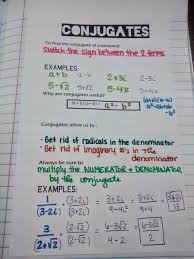 CONJUGATES
To find the conjugate of a binomial:
Switch the sign between the 2 terms
EXAMPLES:
a+b a-b 2+3i 2-3i
5-√2 5+√2 5-4x 5+4x
Why are conjugates useful?
a²-b²
Conjugates allow us to:
· Get rid of radicals in the denominator
· Get rid of imaginary #'s in the denominator
Always be sure to:
multiply the NUMERATOR + DENOMINATOR
by the conjugate
EXAMPLES:
1/(3-2i) (3+2i)/(3+2i) = 3+2i/9-4i² = 3+2i/9+4 = 3+2i/13
3/2+√2 (2-√2)/(2-√2) = 6-3√2/4-2 = 6-3√2/2